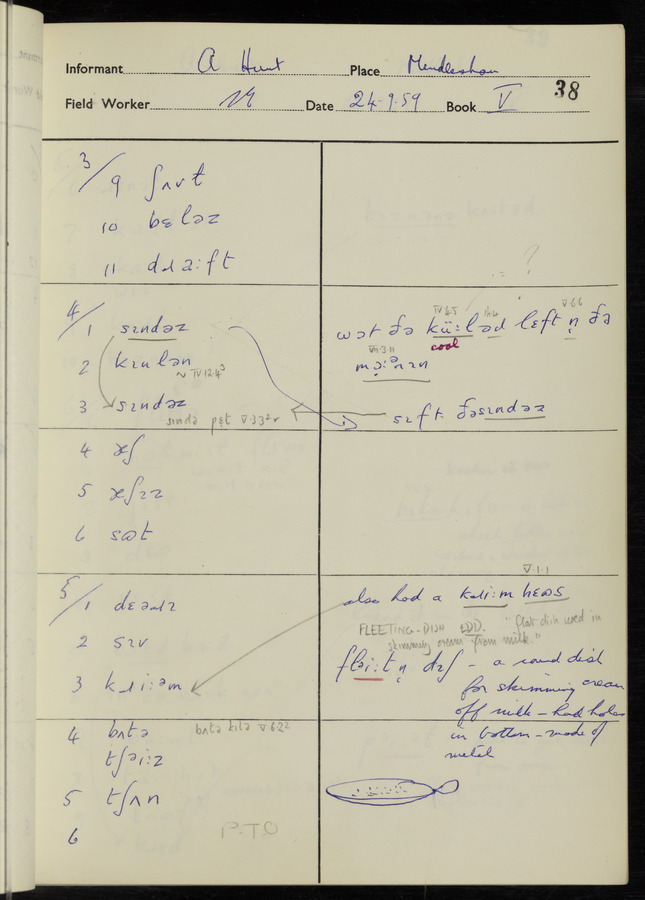 Informant A Hunt Place Mendlesham
38
Field Worker Date 24.9.59 Book V
3/9 ʃʌt
10 bɛləz
11 dɹaːft
?
4/1 sɪndəz
wət ðə küːləd lɛft n̩ ðə
IV.4.5
V.6.6
cool
VII.3.11
2
~ IV.12.4³
3 sɪndəz
sɪndə V.3.3
sɪft ðəsɪndəz
4 æʃ
5 æʃɪz
6 sɷt
V.1.1
5/1
also had a kɹiːm
FLEETING-DISH EDD. "flat dish used in
skimming cream from milk"
2 sɪv
fləiːtn̩ dɪʃ - a round dish
3 kɹiːəm
for skimming cream
off milk - had holes
in bottom - made of
metal
4 bʌtə
bʌtə V.6.2²
tʃəiːz
5 tʃʌn
6
P.T.O